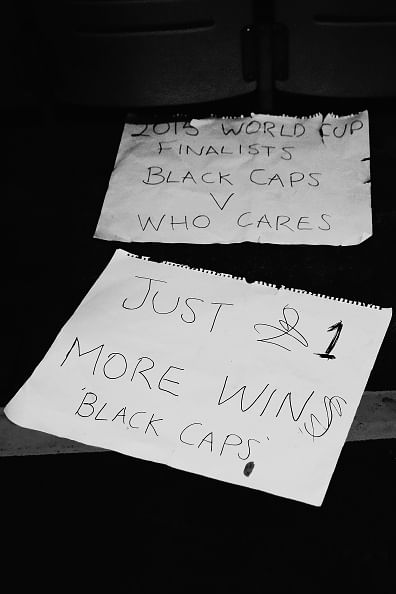 2015 WORLD CUP
FINALISTS
BLACK CAPS
V
WHO CARES
JUST 1
MORE WIN
'BLACK CAPS'